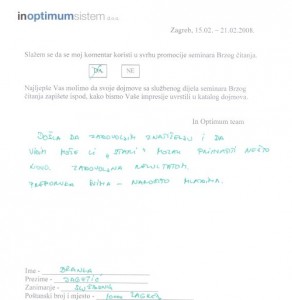 inoptimumsistem d.o.o.
Zagreb, 15.02. – 21.02.2008.
Slažem se da se moj komentar koristi u svrhu promocije seminara Brzog čitanja.
DA NE
Najljepše Vas molimo da svoje dojmove sa službenog dijela seminara Brzog
čitanja zapišete ispod, kako bismo Vaše impresije uvrstili u katalog dojmova.
In Optimum team
DOŠLA DA ZADOVOLJIM ZNATIŽELJU I DA
VIDIM MOŽE LI "STARI" MOZAK PRIMIJETI NEŠTO
NOVO. ZADOVOLJNA REZULTATOM.
PREPORUKA SVIMA - NAROČITO MLADIMA.
Ime - BRANKA
Prezime -
Zanimanje - SLUŽBENIK
Poštanski broj i mjesto - 10000 ZAGREB